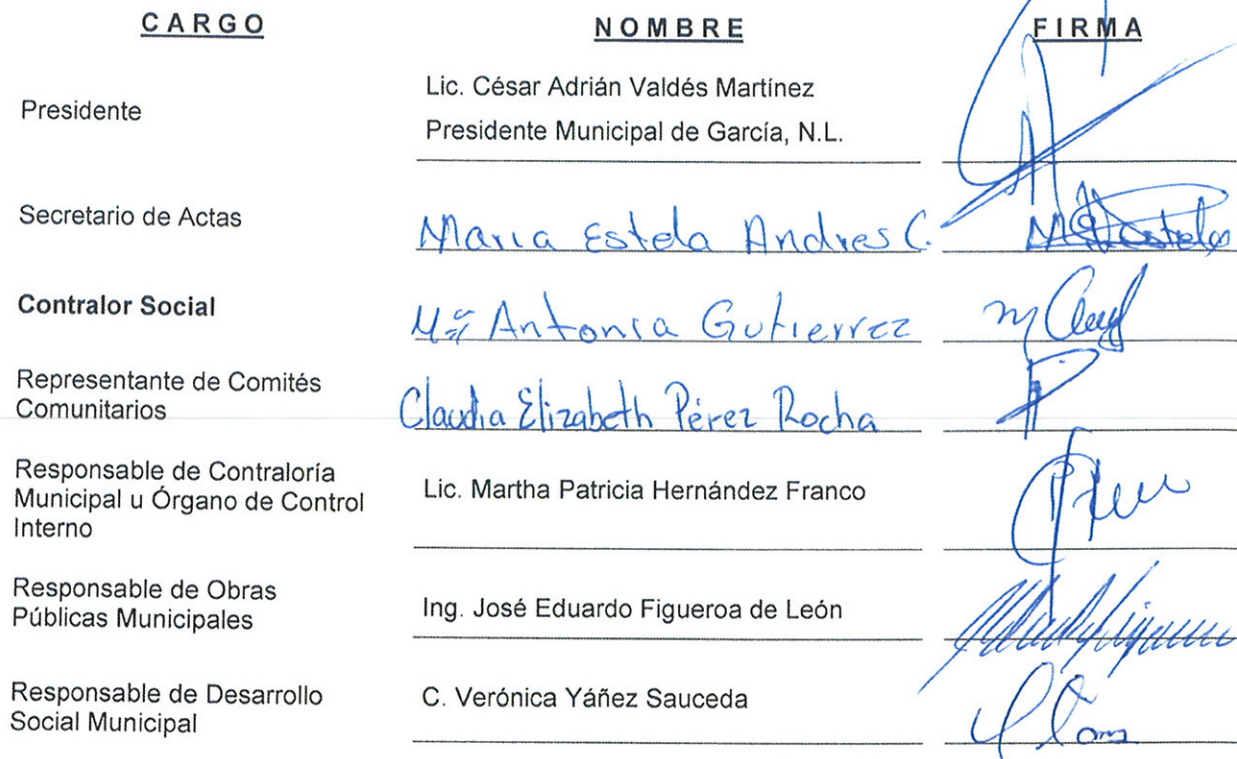 CARGO NOMBRE FIRMA
Presidente
Lic. César Adrián Valdés Martínez
Presidente Municipal de García, N.L.
Secretario de Actas
Maria Estela Andres C.
Contralor Social
Mª Antonia Gutierrez
Representante de Comités
Comunitarios
Claudia Elizabeth Pérez Rocha
Responsable de Contraloría
Municipal u Órgano de Control
Interno
Lic. Martha Patricia Hernández Franco
Responsable de Obras
Públicas Municipales
Ing. José Eduardo Figueroa de León
Responsable de Desarrollo
Social Municipal
C. Verónica Yáñez Sauceda